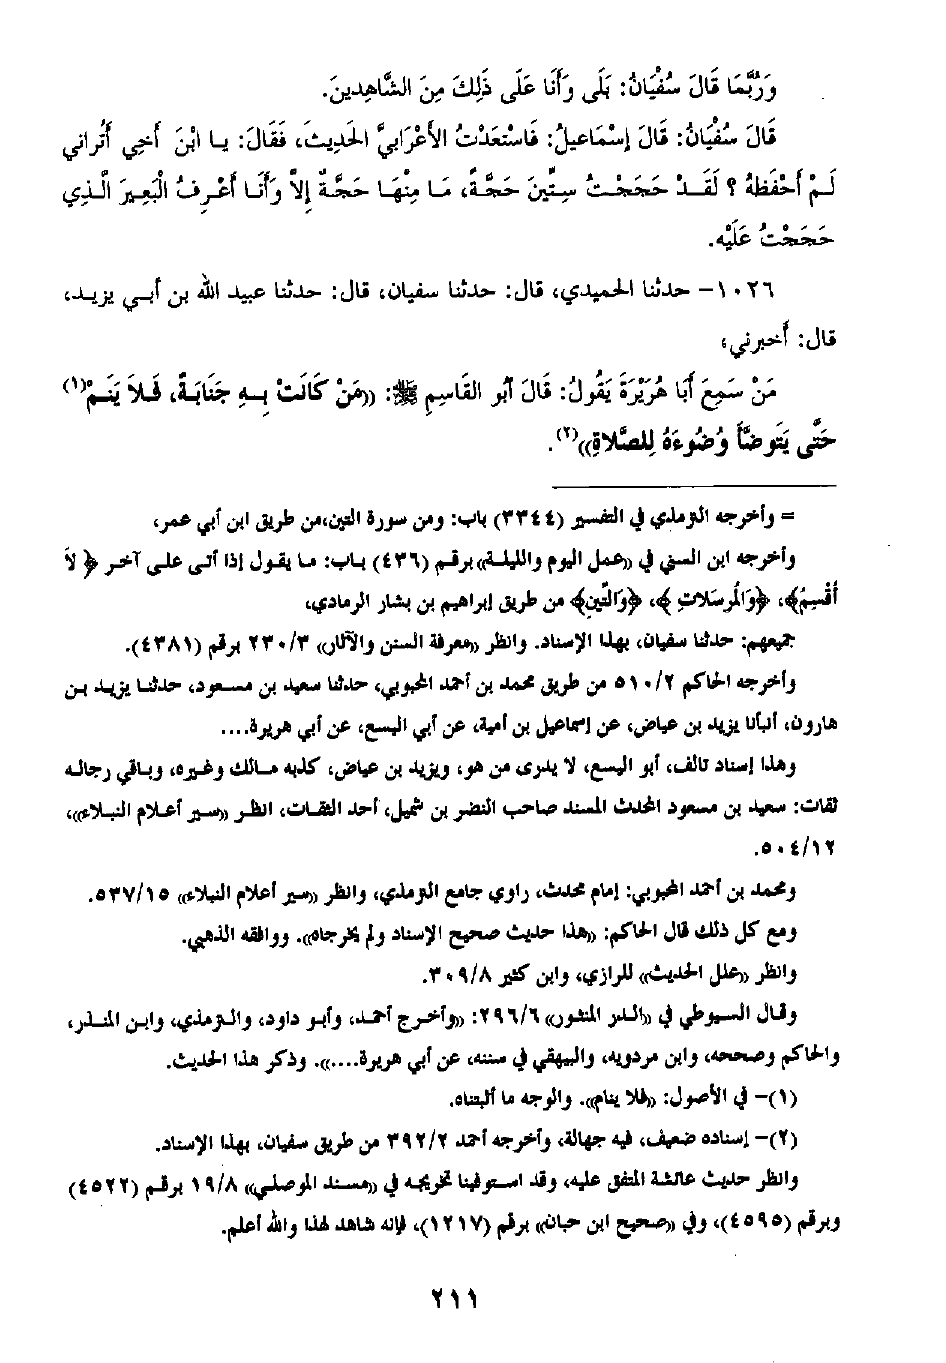 وَرُبَّمَا قَالَ سُفْيَانُ: بَلَى وَأَنَا عَلَى ذَلِكَ مِنَ الشَّاهِدِينَ.
قَالَ سُفْيَانُ: قَالَ إِسْمَاعيلُ: فَاسْتَعَدْتُ الأَعْرَابيَّ الحَدِيثَ، فَقَالَ: يـا ابْنَ أَخِي أَتُراني
لَمْ أَحْفَظْهُ ؟ لَقَدْ حَجَجْتُ سِتِّينَ حَجَّةً، مَا مِنْهَا حَجَّةٌ إِلاَّ وَأَنَا أَعْرِفُ الْبَعِيرَ الَّذِي
حَجَجْتُ عَلَيْهِ.
١٠٢٦- حدثنا الحميدي، قال: حدثنا سفيان، قال: حدثنا عبيد الله بن أبي يزيد،
قال: أخبرني،
مَنْ سَمِعَ أَبَا هُرَيْرَةَ يَقُولُ: قَالَ أَبُو القَاسِمِ ﷺ: ((مَنْ كَانَتْ بِهِ جَنَابَةٌ، فَلاَ يَنَمْ(١)
حَتَّى يَتَوضَّأَ وُضُوءَهُ لِلصَّلاَةِ))(٢).
= وأخرجه الترمذي في التفسير (٣٣٤٤) باب: ومن سورة التين،من طريق ابن أبي عمر،
وأخرجه ابن السني في ((عمل اليوم والليلة)) برقم (٤٣٦) باب: ما يقول إذا أتى على آخر ﴿ لاَ
أُقْسِمُ﴾، ﴿وَالْمُرسَلاتِ ﴾، ﴿وَالتِّينِ﴾ من طريق إبراهيم بن بشار الرمادي،
جميعهم: حدثنا سفيان، بهذا الإسناد. وانظر ((معرفة السنن والآثار)) ٢٣٠/٣ برقم (٤٣٨١).
وأخرجه الحاكم ٥١٠/٢ من طريق محمد بن أحمد المحبوبي، حدثنا سعيد بن مسعود، حدثنا يزيد بن
هارون، أنبأنا يزيد بن عياض، عن إسماعيل بن أمية، عن أبي اليسع، عن أبي هريرة....
وهذا إسناد تالف، أبو اليسع، لا يدرى من هو، ويزيد بن عياض، كذبه مالك وغيره، وباقي رجاله
ثقات: سعيد بن مسعود المحدث المسند صاحب النضر بن شميل، أحد الثقات، انظر ((سير أعلام النبلاء))،
٥٠٤/١٢.
ومحمد بن أحمد المحبوبي: إمام محدث، راوي جامع الترمذي، وانظر ((سير أعلام النبلاء)) ٥٣٧/١٥.
ومع كل ذلك قال الحاكم: ((هذا حديث صحيح الإسناد ولم يخرجاه)). ووافقه الذهبي.
وانظر ((علل الحديث)) للرازي، وابن كثير ٣٠٩/٨.
وقال السيوطي في ((الدر المنثور)) ٢٩٦/٦: ((وأخرج أحمد، وأبو داود، والترمذي، وابن المنذر،
والحاكم وصححه، وابن مردويه، والبيهقي في سننه، عن أبي هريرة....)). وذكر هذا الحديث.
(١)- في الأصول: ((فلا ينام)). والوجه ما أثبتناه.
(٢)- إسناده ضعيف، فيه جهالة، وأخرجه أحمد ٣٩٢/٢ من طريق سفيان، بهذا الإسناد.
وانظر حديث عائشة المتفق عليه، وقد استوفينا تخريجه في ((مسند الموصلي)) ١٩/٨ برقم (٤٥٢٢)
وبرقم (٤٥٩٥)، وفي ((صحيح ابن حبان)) برقم (١٢١٧)، فإنه شاهد لهذا والله أعلم.
٢١١